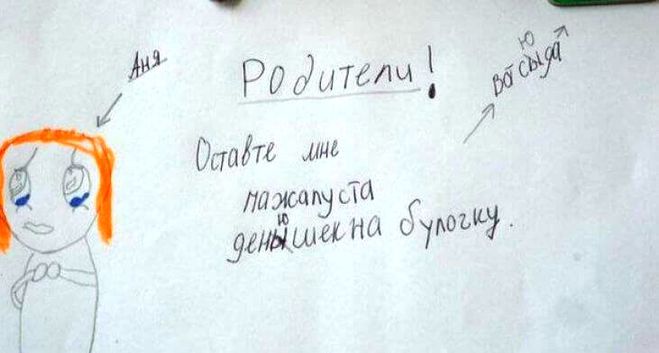 Аня
Родители!
Вот сюда
Оставте мне
пажапуста
денюшек на булочку.